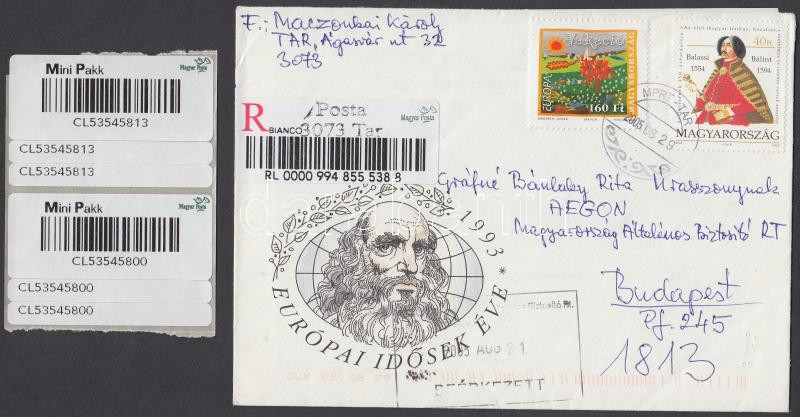 Mini Pakk
Magyar Posta
CL53545813
CL53545813
CL53545813
Mini Pakk
Magyar Posta
CL53545800
CL53545800
CL53545800
F.: Maczonkai Károly
TAR, Ágasvár út 32
3073
Vakáció
EUROPA
MAGYARORSZÁG
160 Ft
40 Ft
Balassi
1554
Bálint
1594
MAGYARORSZÁG
2005 08 29
R
BIANCO
Posta
3073 Tar
Magyar Posta
RL 0000 994 855 538 8
Gráfné Bánlaky Rita Úrasszonynak
AEGON
Magyarország Általános Biztosító RT
Budapest
Pf. 245
1813
1993
EURÓPAI IDŐSEK ÉVE *
Biztosító Rt.
2005 AUG 31
ÉRKEZETT
OLK 05.08.29